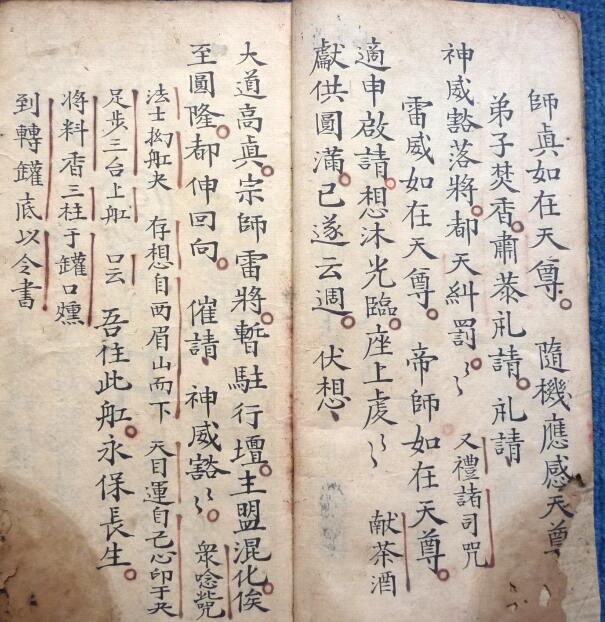 師眞如在天尊。 隨機應感天尊
弟子焚香。肅恭礼請。礼請
神威豁落將。都天糾罰。〻 又禮諸司咒
雷威如在天尊。 帝師如在天尊。
適申啟請。想沐光臨。座上虔〻 献茶酒
獻供圓滿。已遂云週。 伏想、
大道高眞。宗師雷將。暫駐行壇。主盟混化。俟
至圓隆。都伸回向。 催請、 神威豁〻。 衆唸
法士 舡夬 存想自西眉山而下 天目運自己心印于夬
足步三台上舡 口云 吾往此舡。永保長生。
将料香三柱于鑵口
到轉鑵底以令書